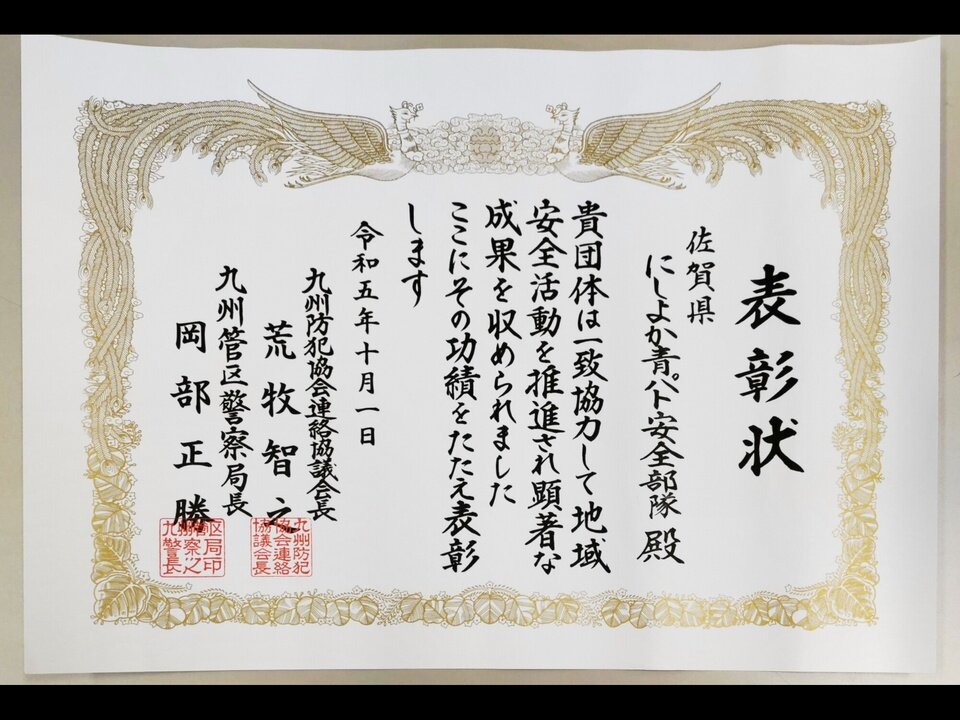 表彰状
佐賀県
にしよか青パト安全部隊 殿
貴団体は一致協力して地域
安全活動を推進され顕著な
成果を収められました
ここにその功績をたたえ表彰
します
令和五年十月一日
九州防犯協会連絡協議会長
荒牧智之
九州管区警察局長
岡部正勝
九州防犯
協会連絡
協議会長
区局印
九警長